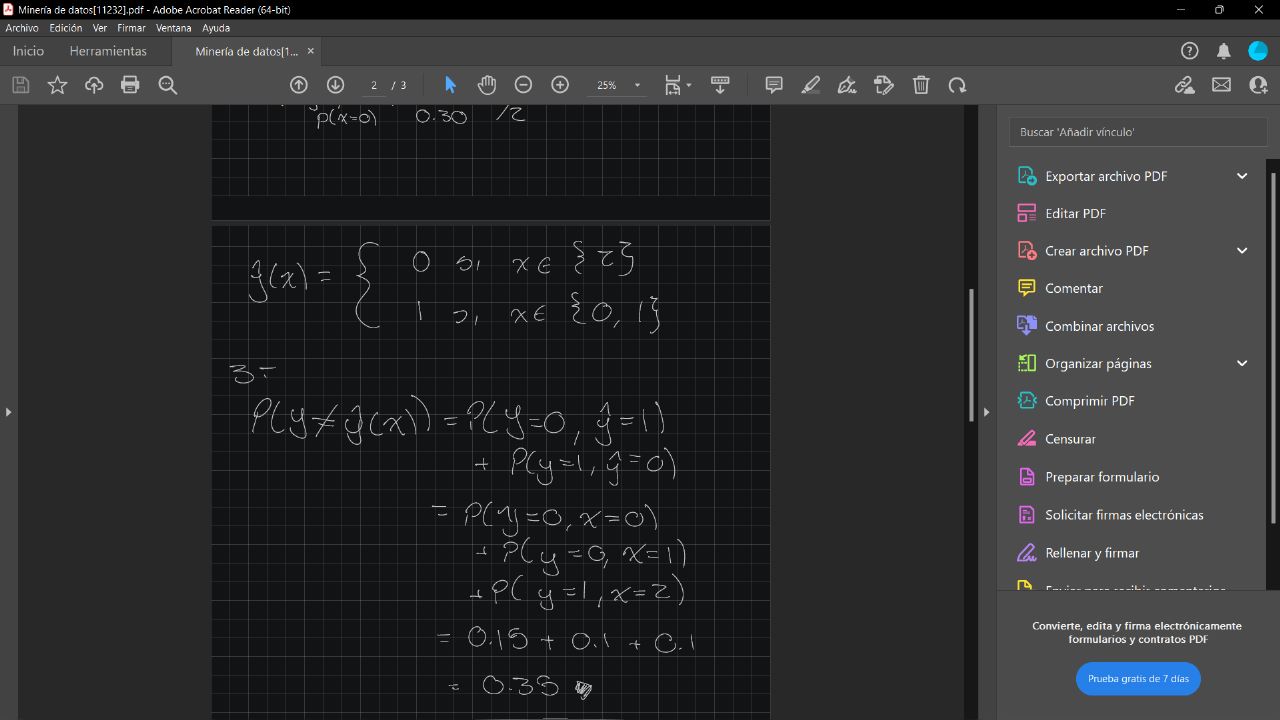 Minería de datos[11232].pdf - Adobe Acrobat Reader (64-bit)
Archivo Edición Ver Firmar Ventana Ayuda
Inicio Herramientas Minería de datos[1... ×
2 / 3 25%
P(x=0) 0.30 /2
ŷ(x) = { 0 si x∈ {2}
1 si x∈ {0, 1}
3-
P(y≠ŷ(x)) = P(y=0, ŷ=1)
+ P(y=1, ŷ=0)
= P(y=0, x=0)
+ P(y=0, x=1)
+ P(y=1, x=2)
= 0.15 + 0.1 + 0.1
= 0.35
Buscar 'Añadir vínculo'
Exportar archivo PDF
Editar PDF
Crear archivo PDF
Comentar
Combinar archivos
Organizar páginas
Comprimir PDF
Censurar
Preparar formulario
Solicitar firmas electrónicas
Rellenar y firmar
Convierte, edita y firma electrónicamente
formularios y contratos PDF
Prueba gratis de 7 días